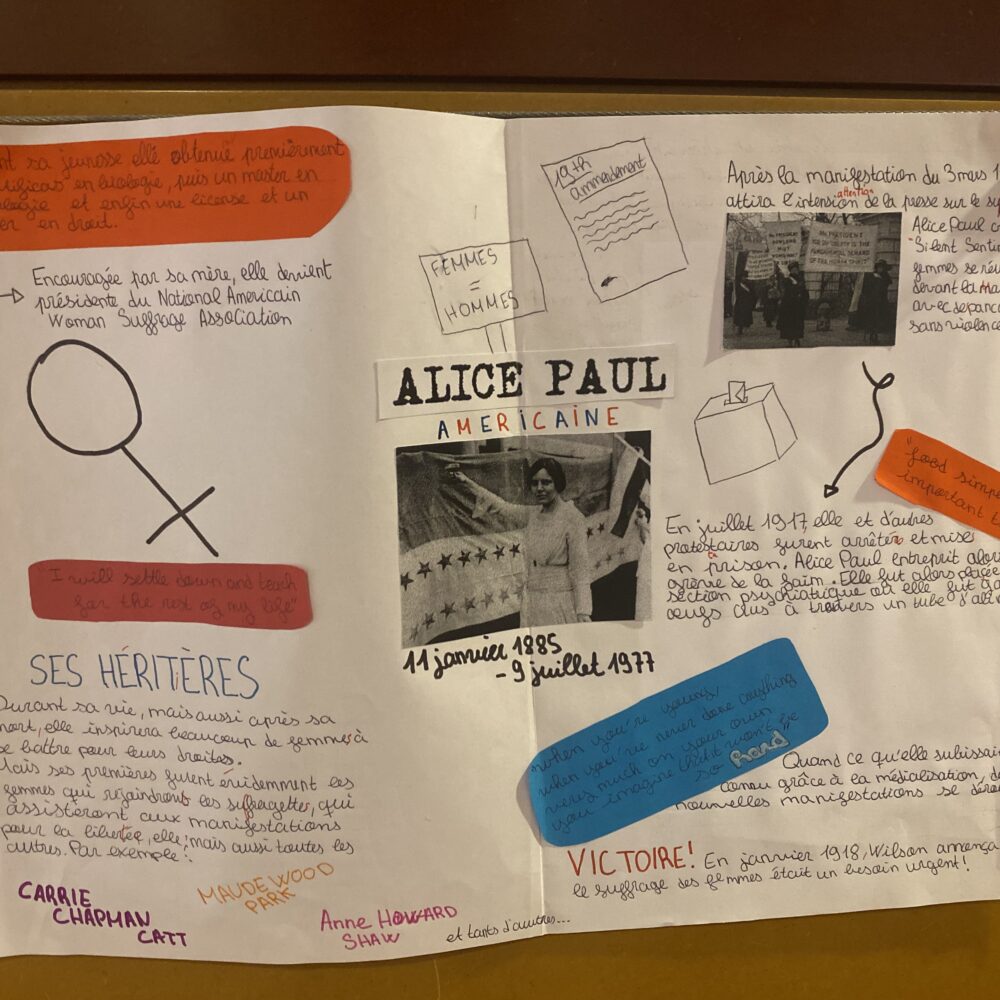 nt sa jeunesse elle obtenue premièrement
en biologie, puis un master en
ologie et enfin une license et un
er en droit.
Encouragée par sa mère, elle devient
présidente du National Americain
Woman Suffrage Association
"I will settle down and teach
for the rest of my life"
SES HÉRITÈRES
Durant sa vie, mais aussi après sa
mort, elle inspirera beaucoup de femmes à
se battre pour leurs droites.
Mais ses premières furent évidemment les
femmes qui rejoindront les suffragettes, qui
assistèront aux manifestations
pour la libertée, elle, mais aussi toutes les
autres. Par exemple :
CARRIE
CHAPMAN
CATT
MAUDE WOOD
PARK
Anne HOWARD
SHAW
et tants d'autres...
19th
ammendement
FEMMES
=
HOMMES
ALICE PAUL
AMERICAINE
11 janvier 1885
- 9 juillet 1977
Après la manifestation du 3 mars 1
attention
attira l'intension de la presse sur le su
Alice Paul c
"Silent Senti
femmes se réu
devant la Ma
avec des panc
sans violence
MR PRESIDENT
HOW LONG
MUST
WOMEN
MR PRESIDENT
THE
FUNDAMENTAL DEMAND
OF THE HUMAN SPIRIT
"food simpl
important t
En juillet 1917, elle et d'autres
protestaires furent arrêtés et mise
en prison. Alice Paul entreprit alors
grève de la faim. Elle fut alors placée
section psychiatrique où elle fut ga
oeufs clus à travers un tube d'ali
when you're young,
when you've never done anything
very much on your own
you imagine that it won't be
so hard
Quand ce qu'elle subissai
connu grâce à la médialisation, de
nouvelles manifestations se déro
VICTOIRE! En janvier 1918, Wilson annonça
le suffrage des femmes était un besoin urgent!